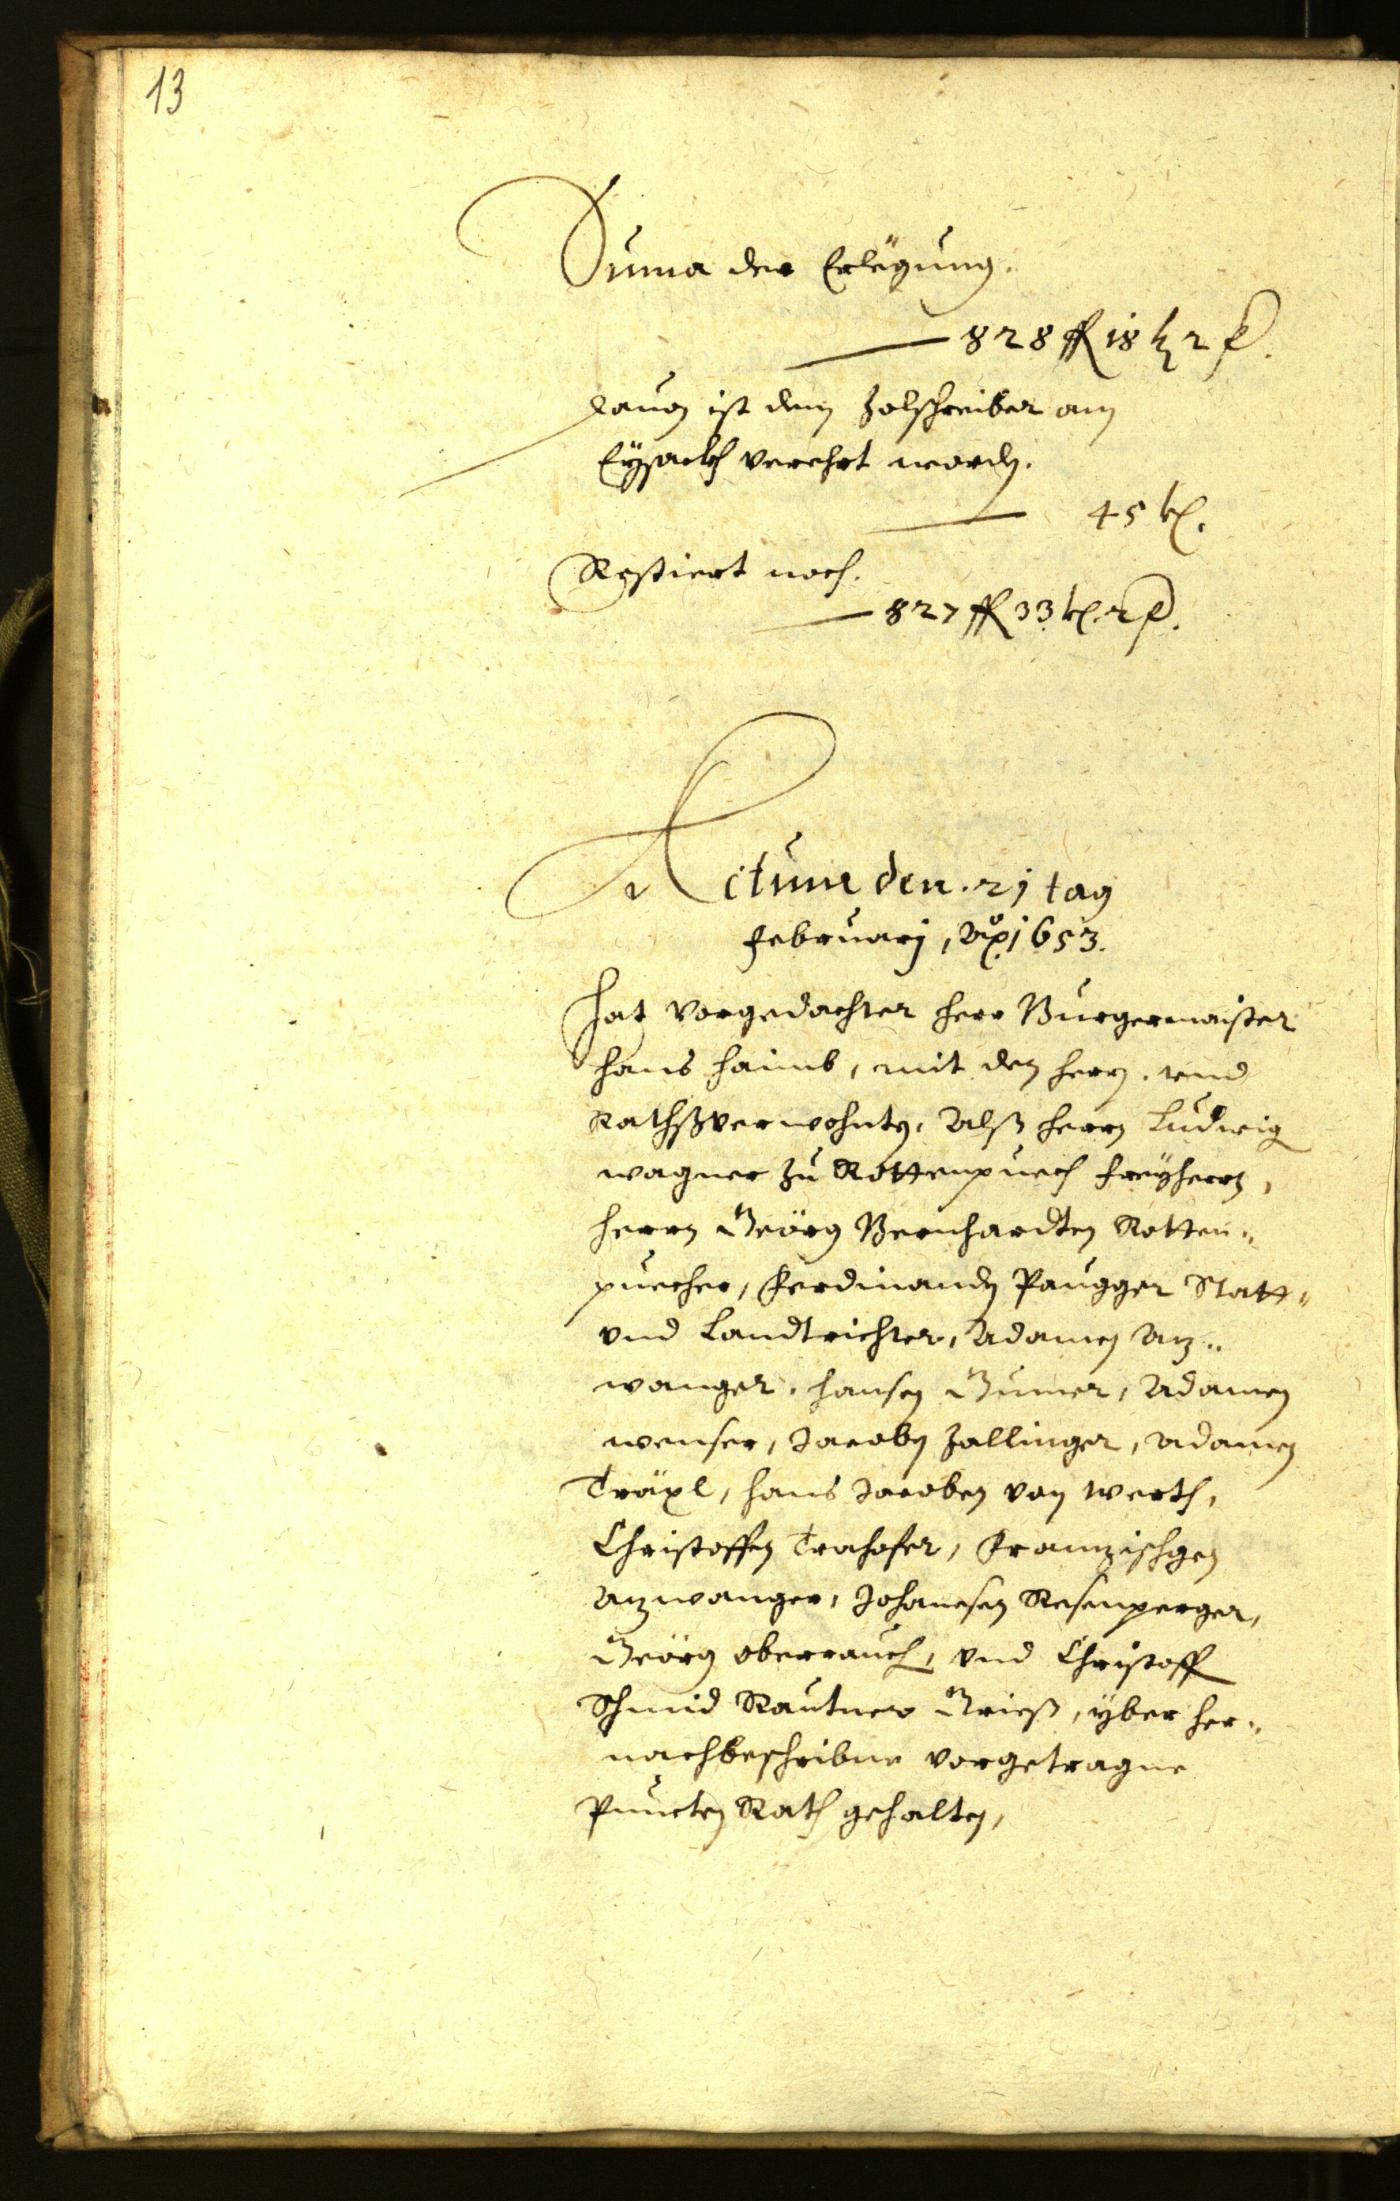 13
Suma der Erlegung.
828 fl 18 kr 2 ₰.
dauon ist dem Zolschreiber am
Eysackh verehrt worden.
45 kr.
Restiert noch.
827 fl 33 kr. 2 ₰.
Actum den. 21 tag
Februarj, Ao. 1653.
Hat vorgedachter Herr Burgermaister
Hans Haimb, mit den Herrn. vnd
Rathßverwohnten, Alß Herrn Ludwig
wagner zu Rottenpuech Freyherrn,
Herrn Geörg Bernhardten Rotten„
puecher, Ferdinanden Paugger Statt„
vnd Landtrichter, Adamen Az„
wanger, Hansen Gumer, Adamen
wenser, Jacoben Zallinger, Adamen
Träxl, Hans Jacoben von werth,
Christoffen Trahofer, Franzischgen
Azwanger, Johanesen Resenperger,
Geörg oberrauch, vnd Christoff
Schmid Rautner Grieß, yber her„
nachbeschribne vorgetragne
Puncten Rath gehalten,